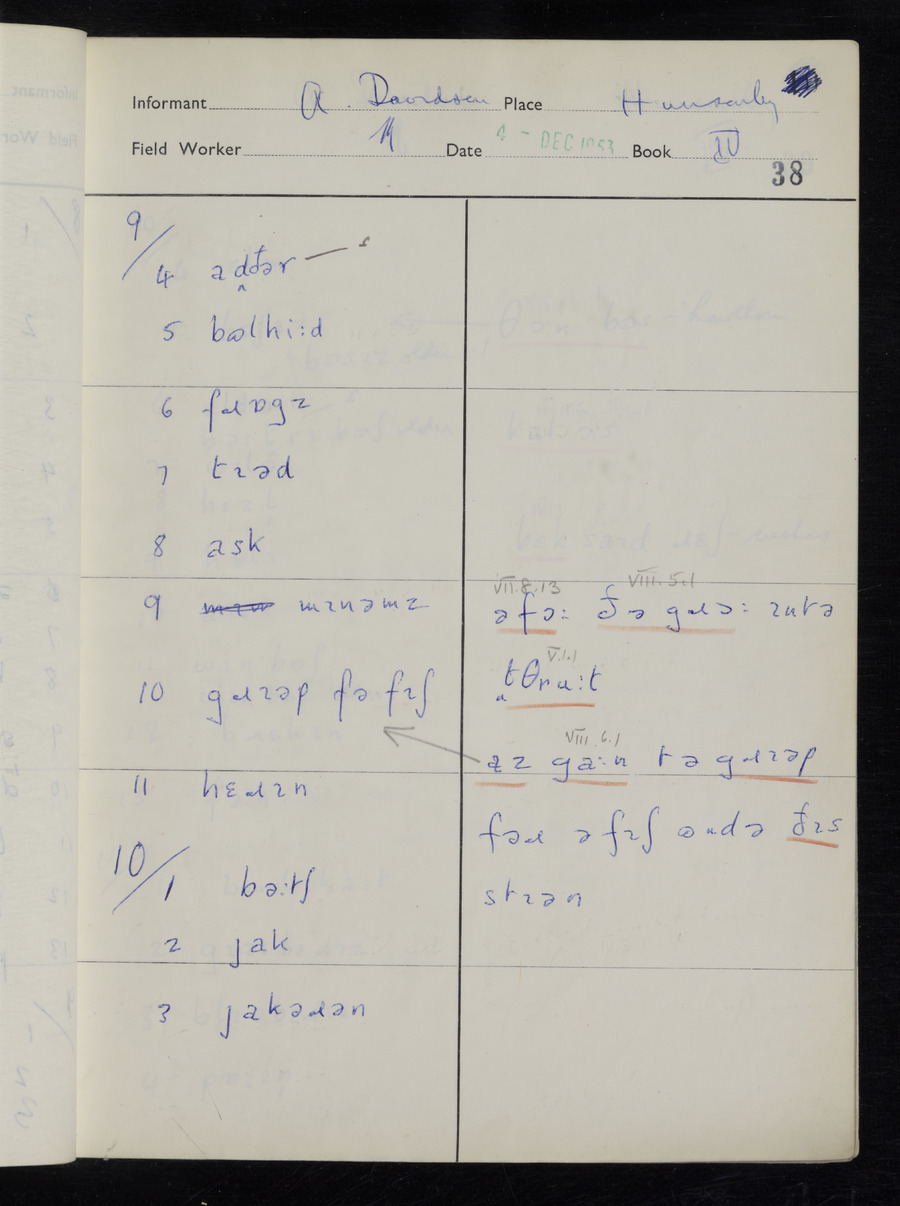 Informant A. Davidson Place Hunsonby
Field Worker Date 4 - DEC 1953 Book IV
38
9/
4 adðəɾ — s
5 bʊlhi:d
6 fɹɒgz
7 tɪəd
8 ask
9 mɪnəmz
10 gɹɪəp fə fɪʃ
11 hɛɹɪn
10/1 bə:tʃ
2 jak
3 jakəɹən
VII.8.13 VIII.5.1
əfɔ: ðə gɹɔ: ɪntə
V.1.1
tθɾu:t
VIII.6.1
az ga:n tə gɹɪəp
fəɹ ə fɪʃ ʊndə ðɪs
stɪən